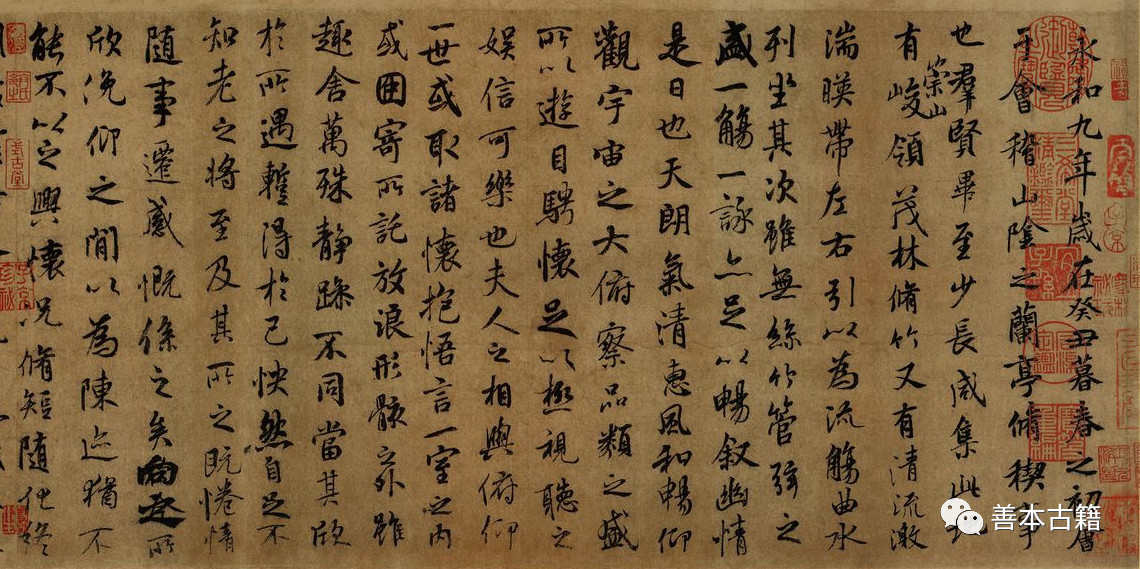 永和九年歲在癸丑暮春之初會
于會稽山陰之蘭亭脩稧事
也羣賢畢至少長咸集此地
有崇山峻領茂林脩竹又有清流激
湍暎帶左右引以為流觴曲水
列坐其次雖無絲竹管弦之
盛一觴一詠亦足以暢叙幽情
是日也天朗氣清惠風和暢仰
觀宇宙之大俯察品類之盛
所以遊目騁懷足以極視聽之
娛信可樂也夫人之相與俯仰
一世或取諸懷抱悟言一室之內
或因寄所託放浪形骸之外雖
趣舍萬殊靜躁不同當其欣
於所遇暫得於己怏然自足不
知老之將至及其所之既惓情
隨事遷感慨係之矣向之所
欣俛仰之間以為陳迹猶不
能不以之興懷況脩短隨化終
善本古籍